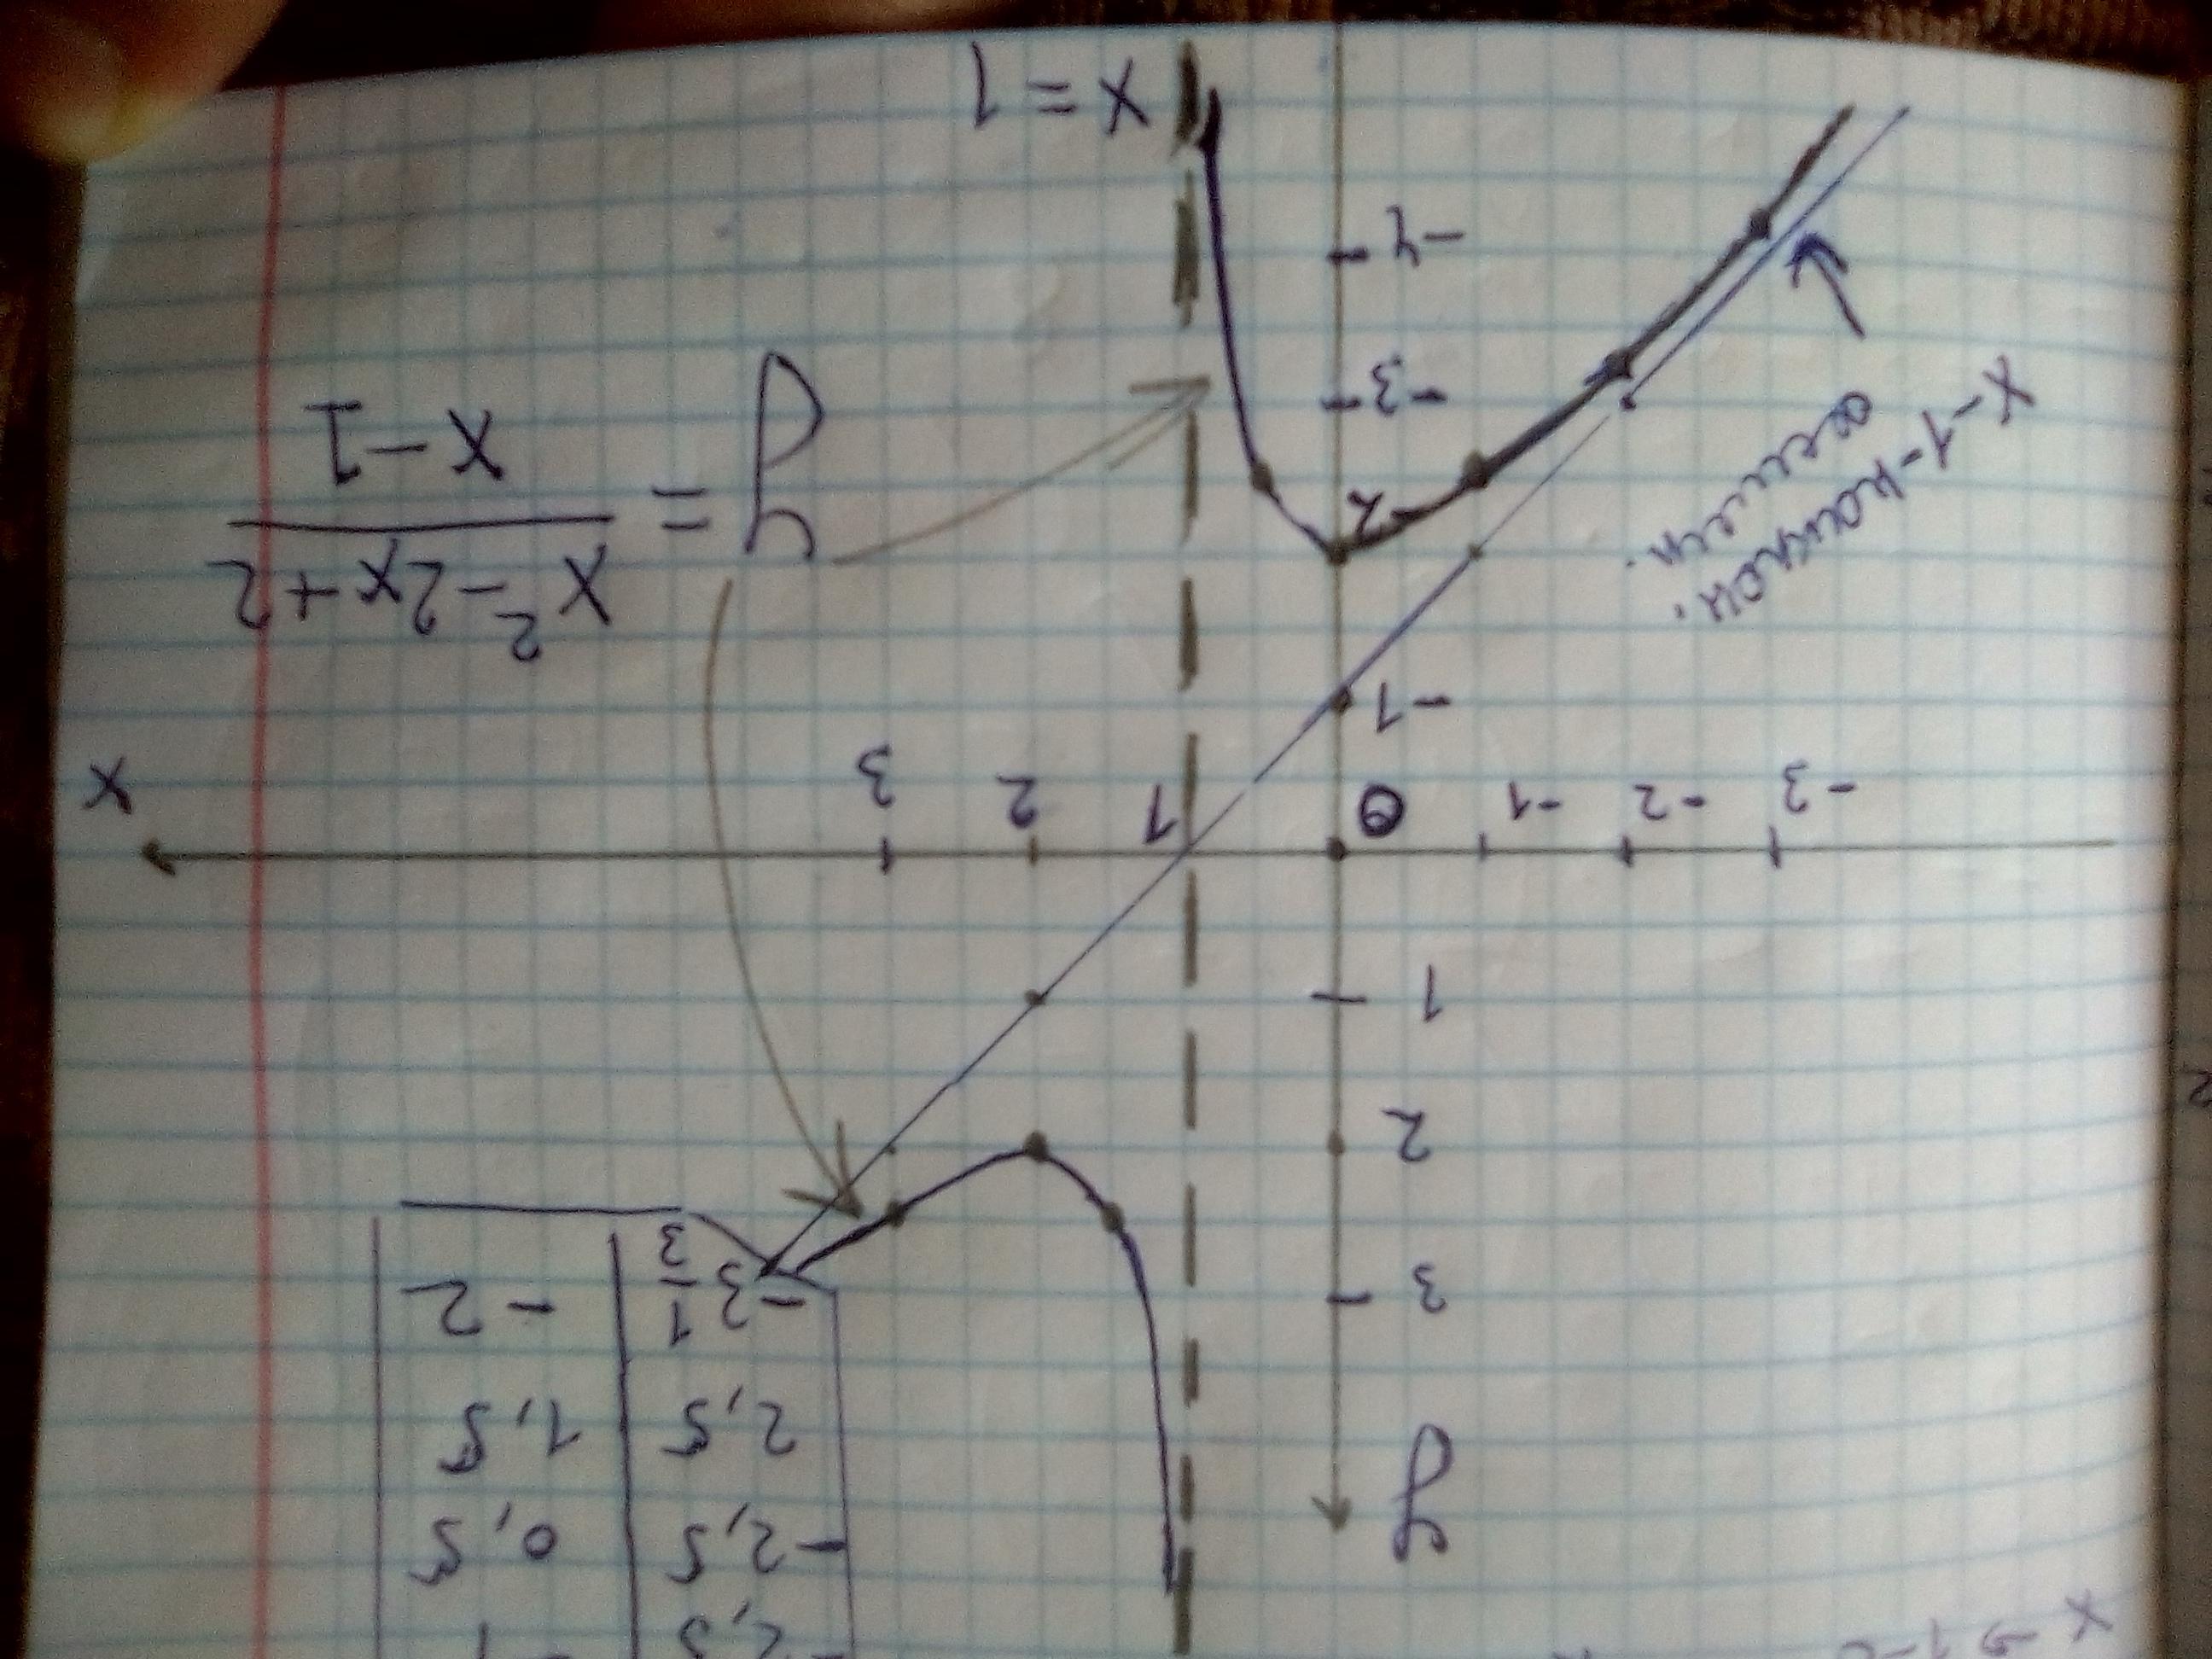 x → 1-0
-2,5 | 0,5
y
2,5 | 1,5
3
-3 1/3 | -2
2
1
-3 -2 -1 0 1 2 3 x
-1
x-1-наклон.
асимп.
y = (x²-2x+2)/(x-1)
-2
-3
-4
x=1